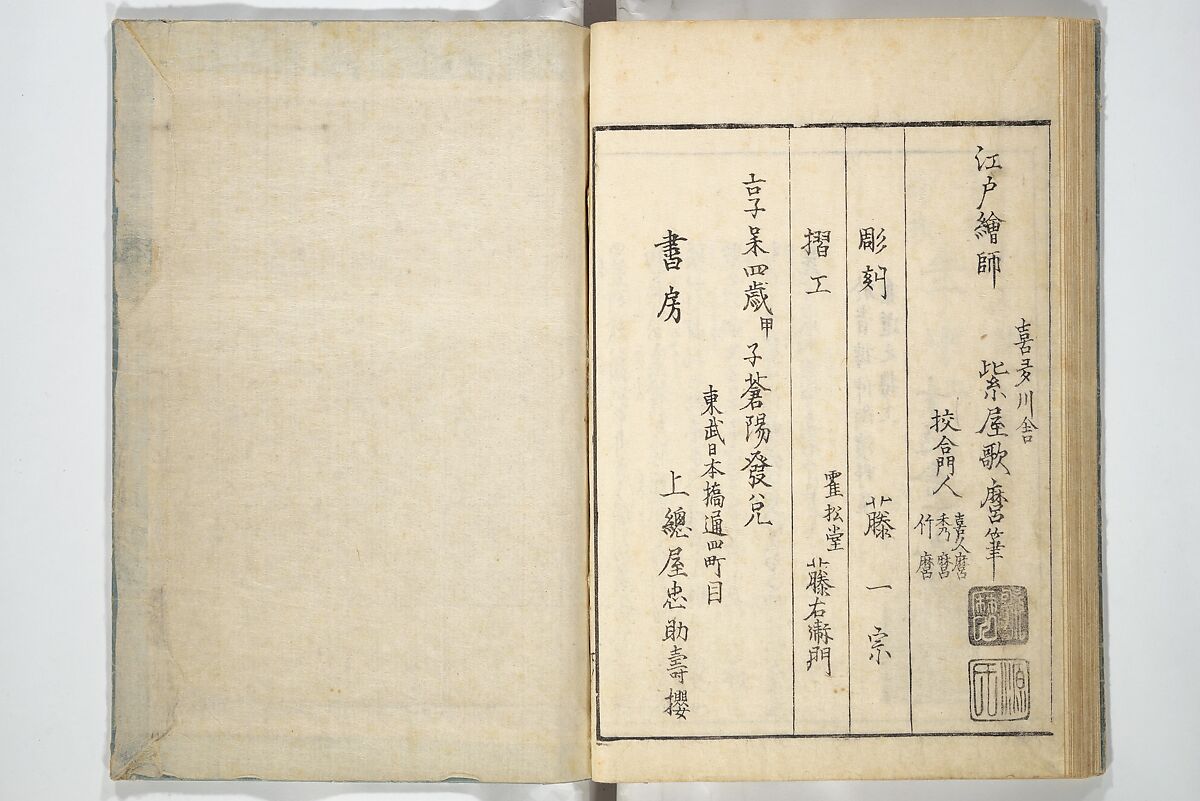 江戸繪師
喜多川舎
紫屋歌麿筆
校合門人
喜久麿
秀麿
竹麿
彫刻 藤一宗
摺工 霍松堂 藤右衛門
享和四歳甲子蒼陽發兌
東武日本橋通四町目
書房 上總屋忠助壽櫻